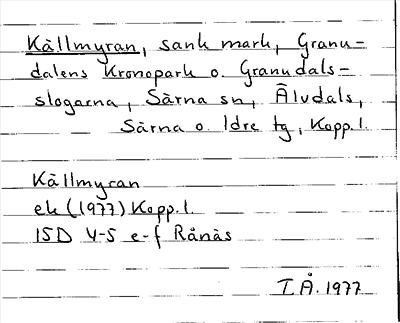 Källmyran, sank mark, Granu-
dalens Kronopark o. Granudals-
skogarna, Särna sn, Älvdals,
Särna o. Idre tg, Kopp.l.
Källmyran
ek (1977) Kopp.l.
15D 4-5 e-f Rånäs
I.Å. 1977